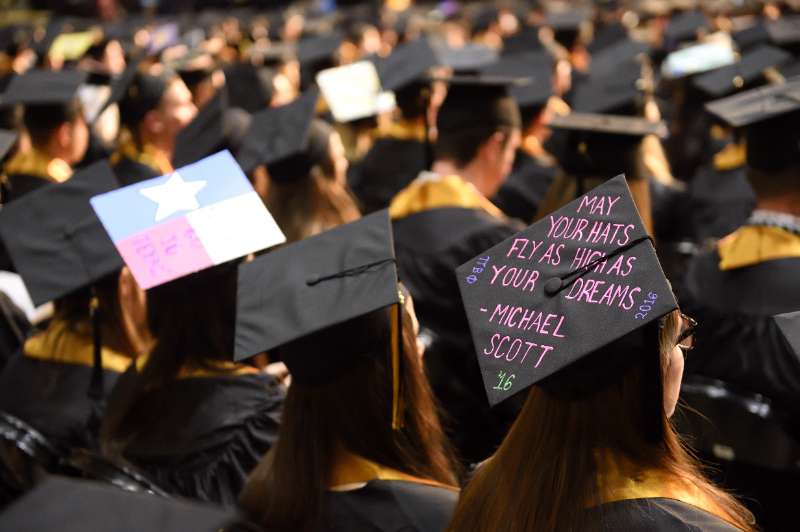 MAY
YOUR HATS
FLY AS HIGH AS
YOUR DREAMS
-MICHAEL
SCOTT
ΦΒΓ
2016
'16